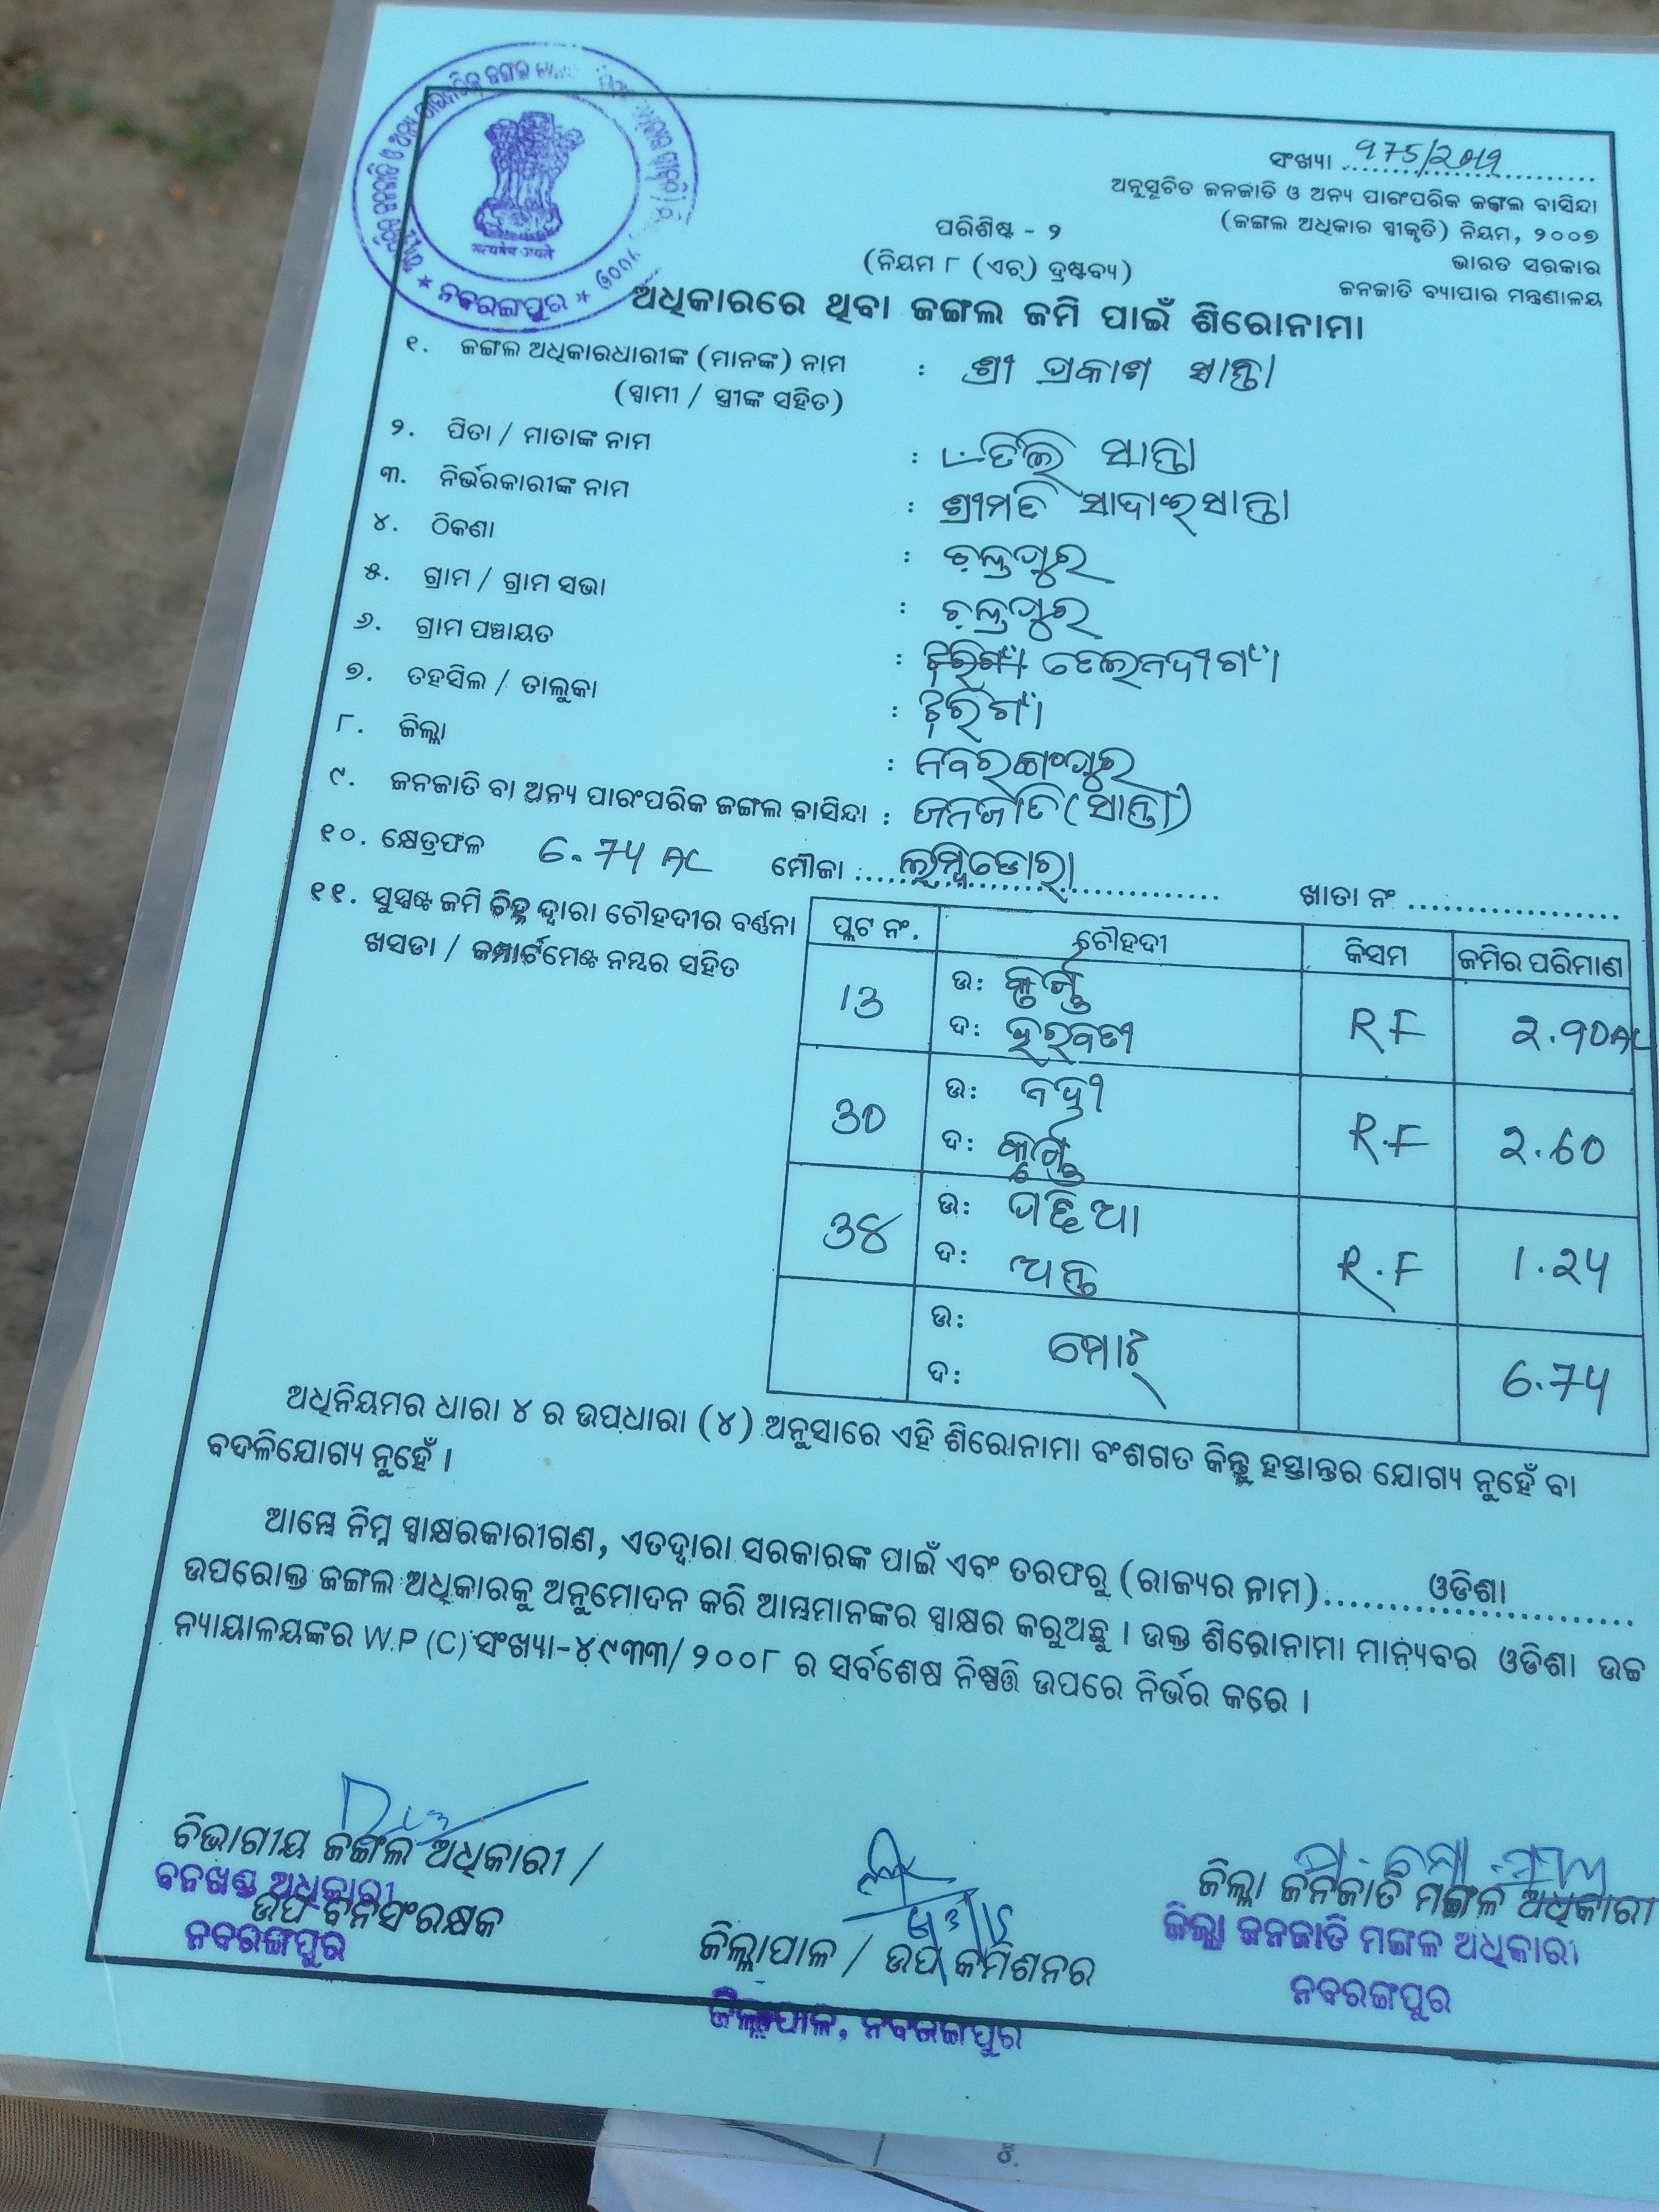 ସଂଖ୍ୟା
ଅନୁସୂଚିତ ଜନଜାତି ଓ ଅନ୍ୟ ପାରଂପରିକ ଜଙ୍ଗଲ ବାସିନ୍ଦା
(ଜଙ୍ଗଲ ଅଧିକାର ସ୍ୱୀକୃତି) ନିୟମ, ୨୦୦୭
ପରିଶିଷ୍ଟ - ୨
ଭାରତ ସରକାର
(ନିୟମ ୮ (ଏଚ୍) ଦ୍ରଷ୍ଟବ୍ୟ)
ଜନଜାତି ବ୍ୟାପାର ମନ୍ତ୍ରଣାଳୟ
सत्यमेव जयते
ନବରଙ୍ଗପୁର
ଅଧିକାରରେ ଥିବା ଜଙ୍ଗଲ ଜମି ପାଇଁ ଶିରୋନାମା
୧. ଜଙ୍ଗଲ ଅଧିକାରଧାରୀଙ୍କ (ମାନଙ୍କ) ନାମ : ଶ୍ରୀ ପ୍ରକାଶ ସାନ୍ତା
(ସ୍ୱାମୀ / ସ୍ତ୍ରୀଙ୍କ ସହିତ)
୨. ପିତା / ମାତାଙ୍କ ନାମ : ସାନ୍ତା
୩. ନିର୍ଭରକାରୀଙ୍କ ନାମ : ଶ୍ରୀମତି
୪. ଠିକଣା : ଚନ୍ଦ୍ରପୁର
୫. ଗ୍ରାମ / ଗ୍ରାମ ସଭା : ଚନ୍ଦ୍ରପୁର
୬. ଗ୍ରାମ ପଞ୍ଚାୟତ : ତେଲନଦୀଗାଁ
୭. ତହସିଲ / ତାଲୁକା : ଝରିଗାଁ
୮. ଜିଲ୍ଲା : ନବରଙ୍ଗପୁର
୯. ଜନଜାତି ବା ଅନ୍ୟ ପାରଂପରିକ ଜଙ୍ଗଲ ବାସିନ୍ଦା : ଜନଜାତି (ସାନ୍ତା)
୧୦. କ୍ଷେତ୍ରଫଳ 6.74 AC ମୌଜା ଖାତା ନଂ
୧୧. ସୁସ୍ପଷ୍ଟ ଜମି ଚିହ୍ନ ଦ୍ୱାରା ଚୌହଦୀର ବର୍ଣ୍ଣନା
ଖସଡା / କମ୍ପାର୍ଟମେଣ୍ଟ ନମ୍ବର ସହିତ
ପ୍ଲଟ ନଂ. ଚୌହଦୀ କିସମ ଜମିର ପରିମାଣ
13 ଉ: RF 2.90 AC
ଦ:
30 ଉ: R.F 2.60
ଦ:
38 ଉ: R.F 1.24
ଦ:
ଉ: ମୋଟ୍ 6.74
ଦ:
ଅଧିନିୟମର ଧାରା ୪ ର ଉପଧାରା (୪) ଅନୁସାରେ ଏହି ଶିରୋନାମା ବଂଶଗତ କିନ୍ତୁ ହସ୍ତାନ୍ତର ଯୋଗ୍ୟ ନୁହେଁ ବା
ବଦଳିଯୋଗ୍ୟ ନୁହେଁ ।
ଆମ୍ଭେ ନିମ୍ନ ସ୍ୱାକ୍ଷରକାରୀଗଣ, ଏତଦ୍ୱାରା ସରକାରଙ୍କ ପାଇଁ ଏବଂ ତରଫରୁ (ରାଜ୍ୟର ନାମ) ଓଡିଶା
ଉପରୋକ୍ତ ଜଙ୍ଗଲ ଅଧିକାରକୁ ଅନୁମୋଦନ କରି ଆମ୍ଭମାନଙ୍କର ସ୍ୱାକ୍ଷର କରୁଅଛୁ । ଉକ୍ତ ଶିରୋନାମା ମାନ୍ୟବର ଓଡିଶା ଉଚ୍ଚ
ନ୍ୟାୟାଳୟଙ୍କର W.P (C) ସଂଖ୍ୟା-୪୯୩୩/ ୨୦୦୮ ର ସର୍ବଶେଷ ନିଷ୍ପତ୍ତି ଉପରେ ନିର୍ଭର କରେ ।
ବିଭାଗୀୟ ଜଙ୍ଗଲ ଅଧିକାରୀ /
ବନଖଣ୍ଡ ଅଧିକାରୀ
ଉପ ବନସଂରକ୍ଷକ
ନବରଙ୍ଗପୁର
ଜିଲ୍ଲାପାଳ / ଉପ କମିଶନର
ଜିଲ୍ଲାପାଳ, ନବରଙ୍ଗପୁର
ଜିଲ୍ଲା ଜନଜାତି ମଙ୍ଗଳ ଅଧିକାରୀ
ଜିଲ୍ଲା ଜନଜାତି ମଙ୍ଗଳ ଅଧିକାରୀ
ନବରଙ୍ଗପୁର